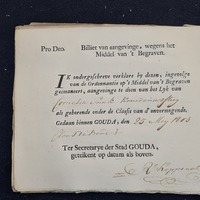 Pro Deo. Billiet van aangevinge, wegens het
Middel van 't Begraven.
IK ondergeschreve verklare by dezen, ingevolge
van de Ordonnantie op 't Middel van 't Begraven
geëmaneert, aangevinge te doen van het Lyk van
Cornelia
als gehorende onder de Classis van d'onvermogende.
Gedaan binnen GOUDA, den 25 May 1803
Ter Secretarye der Stad GOUDA,
getekent op datum als boven.